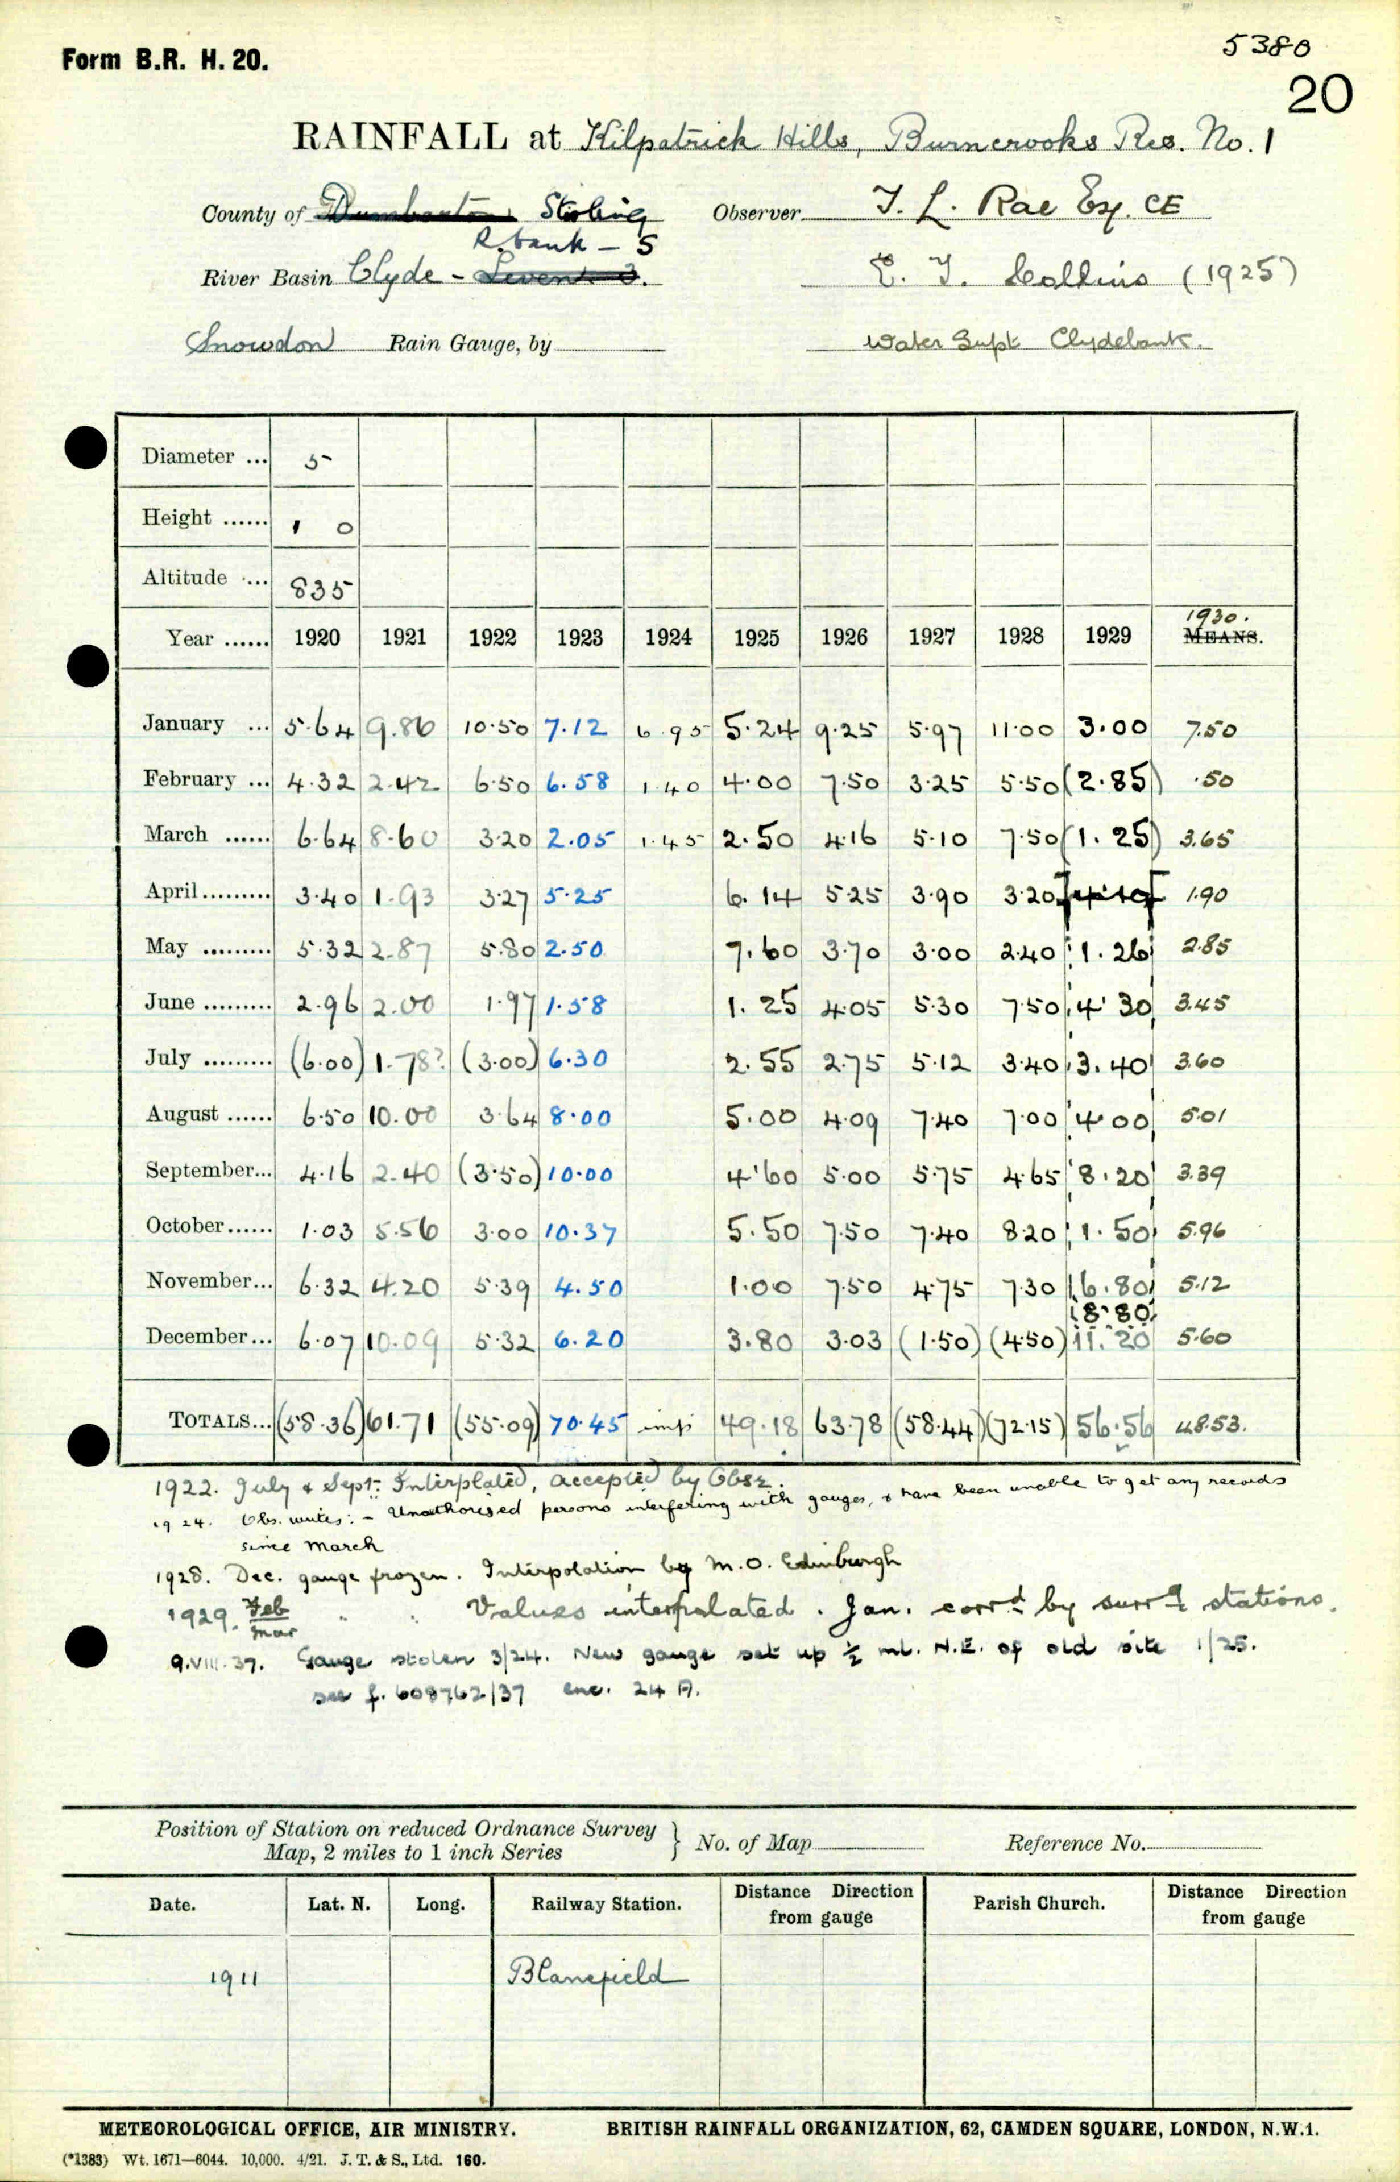 5380
Form B.R. H. 20.
20
RAINFALL at Kilpatrick Hills, Burncrooks Res. No. 1
County of Dumbarton Stirling Observer J. L. Rae Esq. CE
R. bank - 5
River Basin Clyde - Leven 3. E. J. Collins (1925)
Snowdon Rain Gauge, by Water Supt Clydebank.
Diameter ... 5
Height ...... 1 0
Altitude ... 835
1930.
Year ...... 1920 1921 1922 1923 1924 1925 1926 1927 1928 1929 MEANS.
January ... 5.64 9.86 10.50 7.12 6.95 5.24 9.25 5.97 11.00 3.00 7.50
February ... 4.32 2.42 6.50 6.58 1.40 4.00 7.50 3.25 5.50 (2.85) .50
March ...... 6.64 8.60 3.20 2.05 1.45 2.50 4.16 5.10 7.50 (1.25) 3.65
April ......... 3.40 1.93 3.27 5.25 6.14 5.25 3.90 3.20 1.90
May ......... 5.32 2.87 5.80 2.50 7.60 3.70 3.00 2.40 1.26 2.85
June ......... 2.96 2.00 1.97 1.58 1.25 4.05 5.30 7.50 4.30 3.45
July ......... (6.00) 1.78? (3.00) 6.30 2.55 2.75 5.12 3.40 3.40 3.60
August ...... 6.50 10.00 3.64 8.00 5.00 4.09 7.40 7.00 4.00 5.01
September... 4.16 2.40 (3.50) 10.00 4.60 5.00 5.75 4.65 8.20 3.39
October...... 1.03 5.56 3.00 10.37 5.50 7.50 7.40 8.20 1.50 5.96
November... 6.32 4.20 5.39 4.50 1.00 7.50 4.75 7.30 16.80 5.12
(8.80)
December... 6.07 10.09 5.32 6.20 3.80 3.03 (1.50) (4.50) 11.20 5.60
TOTALS... (58.36) 61.71 (55.09) 70.45 imp 49.18 63.78 (58.44) (72.15) 56.56 48.53.
1922. July & Sept: Interplated, accepted by Obsr.
1924. Obs. writes: - Unauthorised persons interfering with gauges, & have been unable to get any records
since March
1928. Dec. gauge frozen. Interpolation by M.O. Edinburgh
1929. Feb Mar " " Values interpolated. Jan. corrd by surrg stations.
9.VIII.37. Gauge stolen 3/24. New gauge set up ½ ml. N.E. of old site 1/25.
see f. 608762/37 enc. 24 A.
Position of Station on reduced Ordnance Survey
Map, 2 miles to 1 inch Series } No. of Map Reference No.
Date. Lat. N. Long. Railway Station. Distance Direction from gauge Parish Church. Distance Direction from gauge
1911 Blanefield
METEOROLOGICAL OFFICE, AIR MINISTRY. BRITISH RAINFALL ORGANIZATION, 62, CAMDEN SQUARE, LONDON, N.W.1.
(*1383) Wt. 1671—6044. 10,000. 4/21. J. T. & S., Ltd. 160.